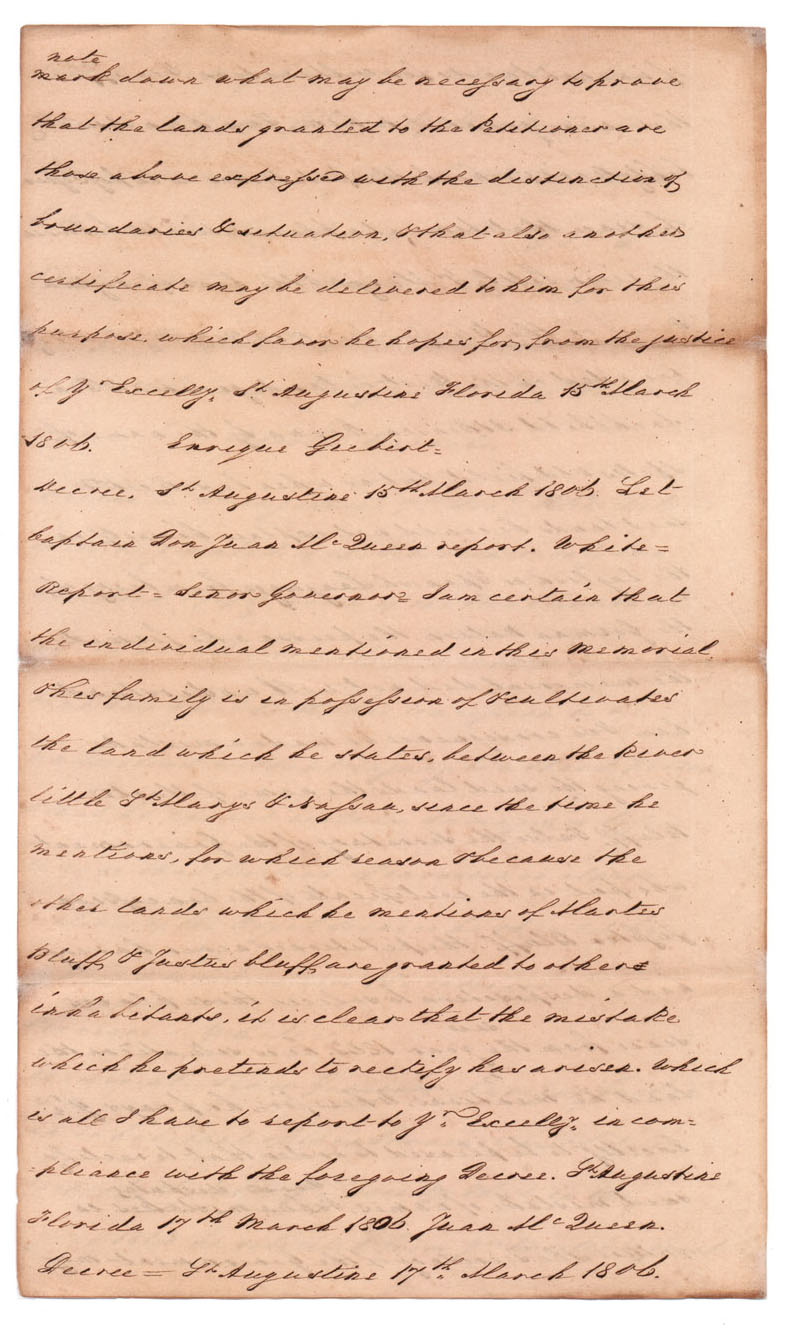 note
mark down what may be necessary to prove
that the lands granted to the Petitioner are
those above expressed with the distinction of
boundaries & situation, & that also another
certificate may be delivered to him for this
purpose, which favor he hopes for, from the justice
of Yr Excelly. St Augustine Florida 15th March
1806. Enrique Geebert=
Decree. St Augustine 15th March 1806. Let
Captain Don Juan Mc Queen report. White=
Report= Senor Governor= I am certain that
the individual mentioned in this Memorial
& his family is in possession of & cultivates
the land which he states, between the River
little St Marys & Nassau, since the time he
mentions, for which reason & because the
other lands which he mentions of Martes
bluff & Justus bluff are granted to other
inhabitants, it is clear that the mistake
which he pretends to rectify has arisen. Which
is all I have to report to Yr. Excelly. in com=
=pliance with the foregoing Decree. St. Augustine
Florida 17th March 1806. Juan Mc Queen.
Decree = St Augustine 17th March 1806.